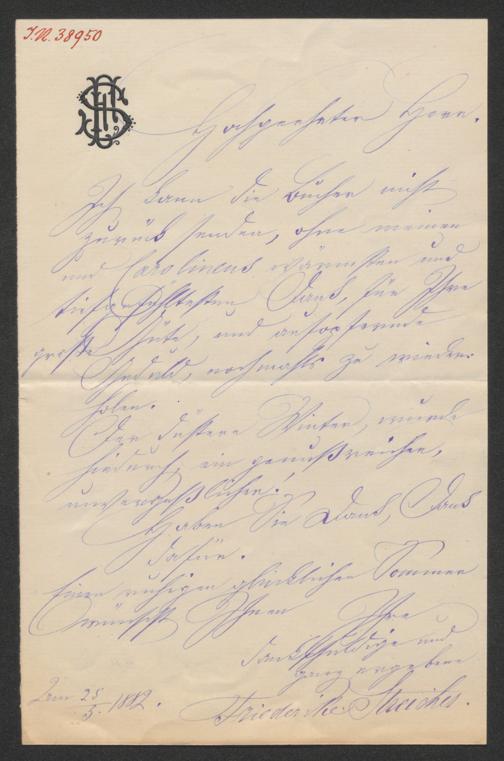 I.N. 38950
Hochgeehrter Herr.
Ich kann die Bücher nicht
zurück senden, ohne meinen
und Carolinens wärmsten und
tiefgefühltesten Dank, für Ihre
große Güte, und aufopfernde
Geduld, nochmahls zu wieder-
holen.
Der düstere Winter, wurde
hiedurch, ein genußreicher,
unvergeßlicher!
Haben Sie Dank, Dank
dafür.
Einen ruhigen glücklichen Sommer
wünscht Ihnen Ihre
dankschuldige und
ganz ergebene
Friederike Streicher.
Den 25/5. 1882.